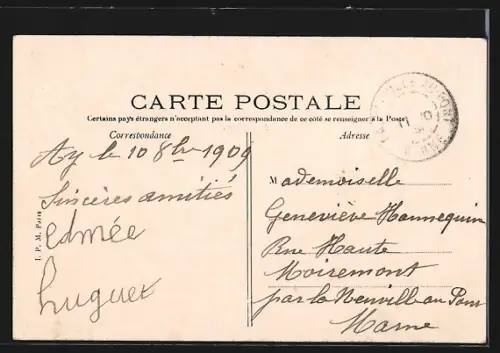 CARTE POSTALE
Certains pays étrangers n'acceptant pas la correspondance de ce côté se renseigner à la Poste
Correspondance
Adresse
Ay le 10 8bre 1909
Sincères amitiés
edmée
huguet
Mademoiselle
Geneviève Hannequin
Rue Haute
Moiremont
par la Neuville au Pont
Marne
I. P. M. Paris